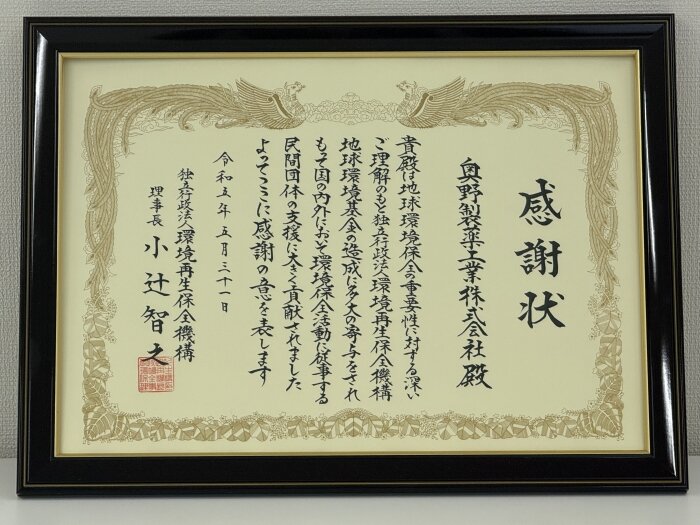 感謝状
奥野製薬工業株式会社 殿
貴殿は地球環境保全の重要性に対する深い
ご理解のもと独立行政法人環境再生保全機構
地球環境基金の造成に多大の寄与をされ
もって国の内外における環境保全活動に従事する
民間団体の支援に大きく貢献されました
よってここに感謝の意を表します
令和五年五月三十一日
独立行政法人環境再生保全機構
理事長 小辻智之